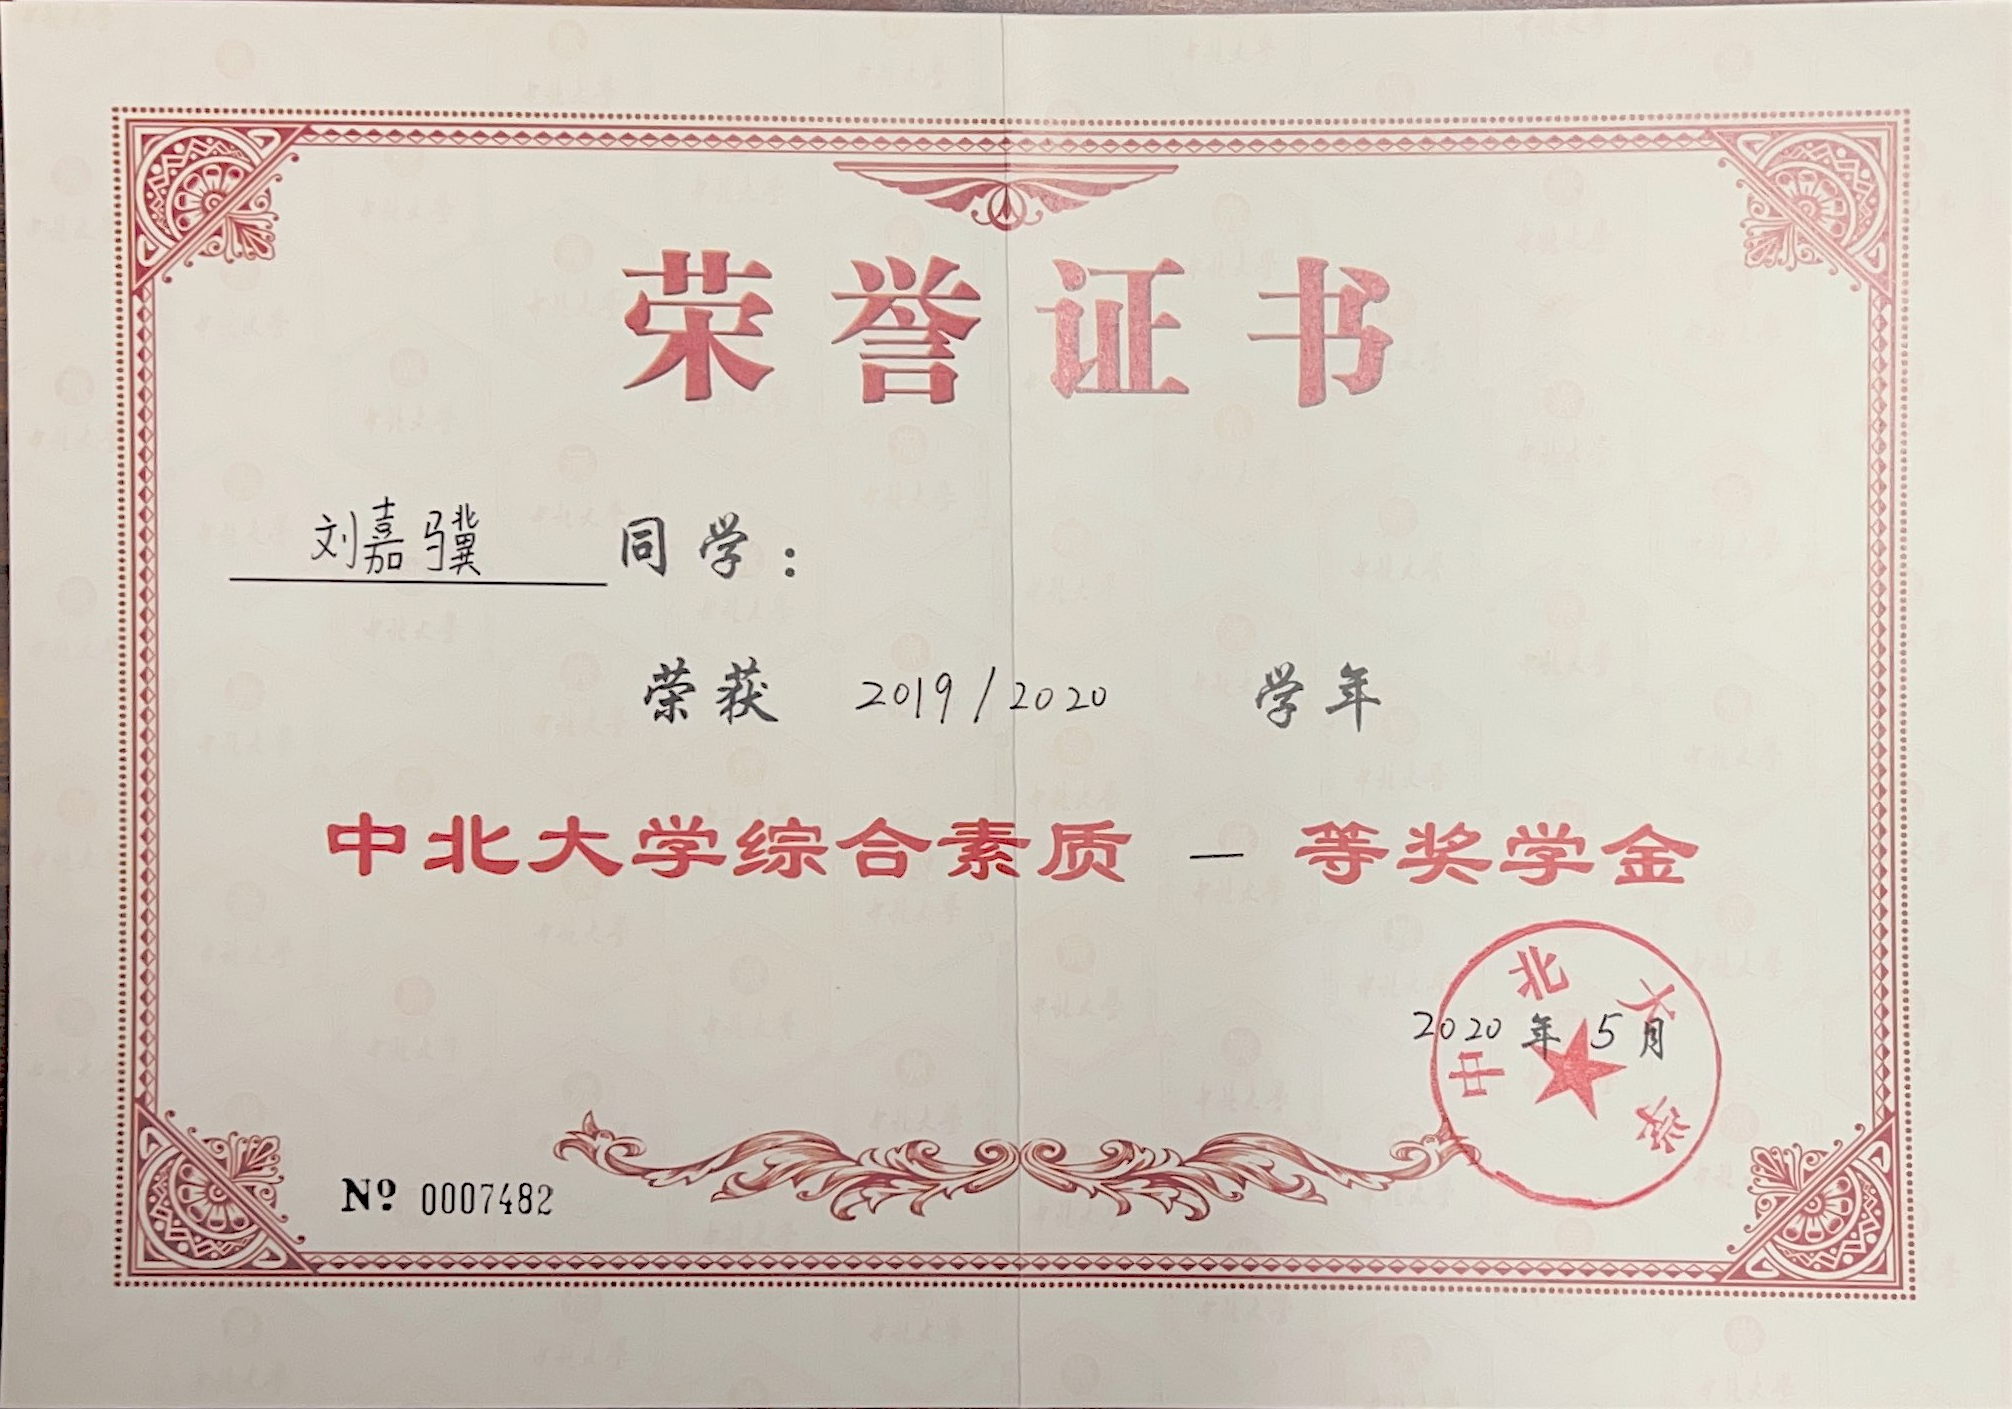 荣誉证书
刘嘉骥 同学：
荣获 2019/2020 学年
中北大学综合素质 一 等奖学金
中北大学
2020 年 5 月
Nº 0007482